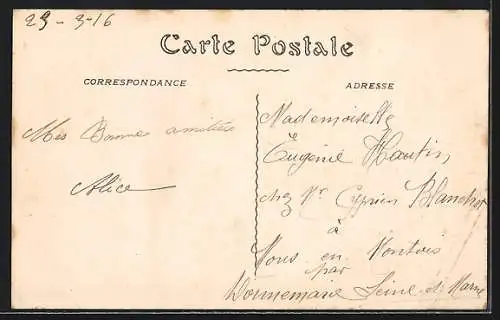 23 - 3-16
Carte Postale
CORRESPONDANCE
ADRESSE
Mes Bonne amitiés
Alice
Mademoiselle
Eugénie Hautin,
chez Mr Cyprien Blanchot
à
Mous en Montois
par
Donnemarie Seine et Marne